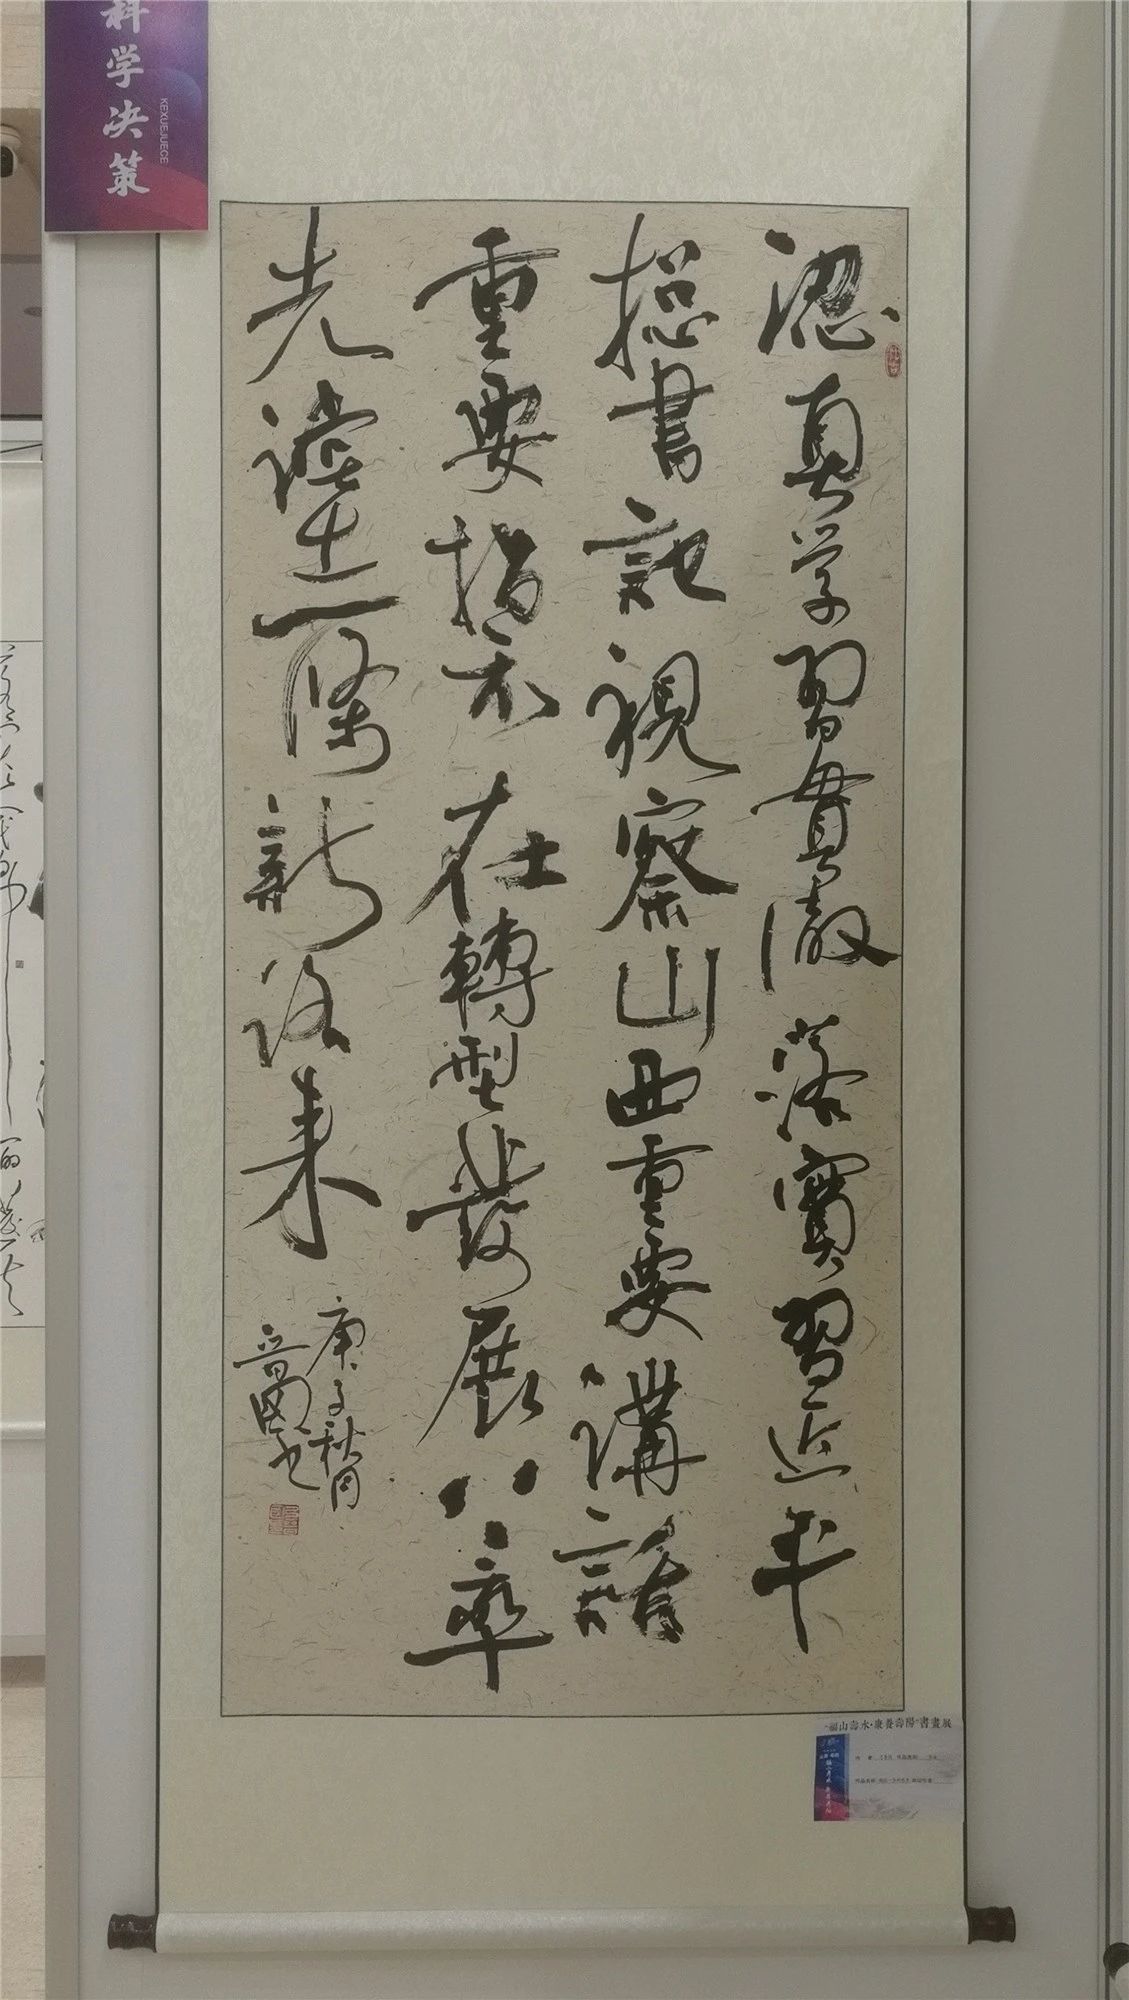 科学决策
KEXUEJUECE
認真学習貫徹落實習近平
總書記視察山西重要講話
重要指示在轉型發展上率
先蹚出一條新路來
庚子秋月
晋國書
"福山壽水·康養壽陽"書畫展